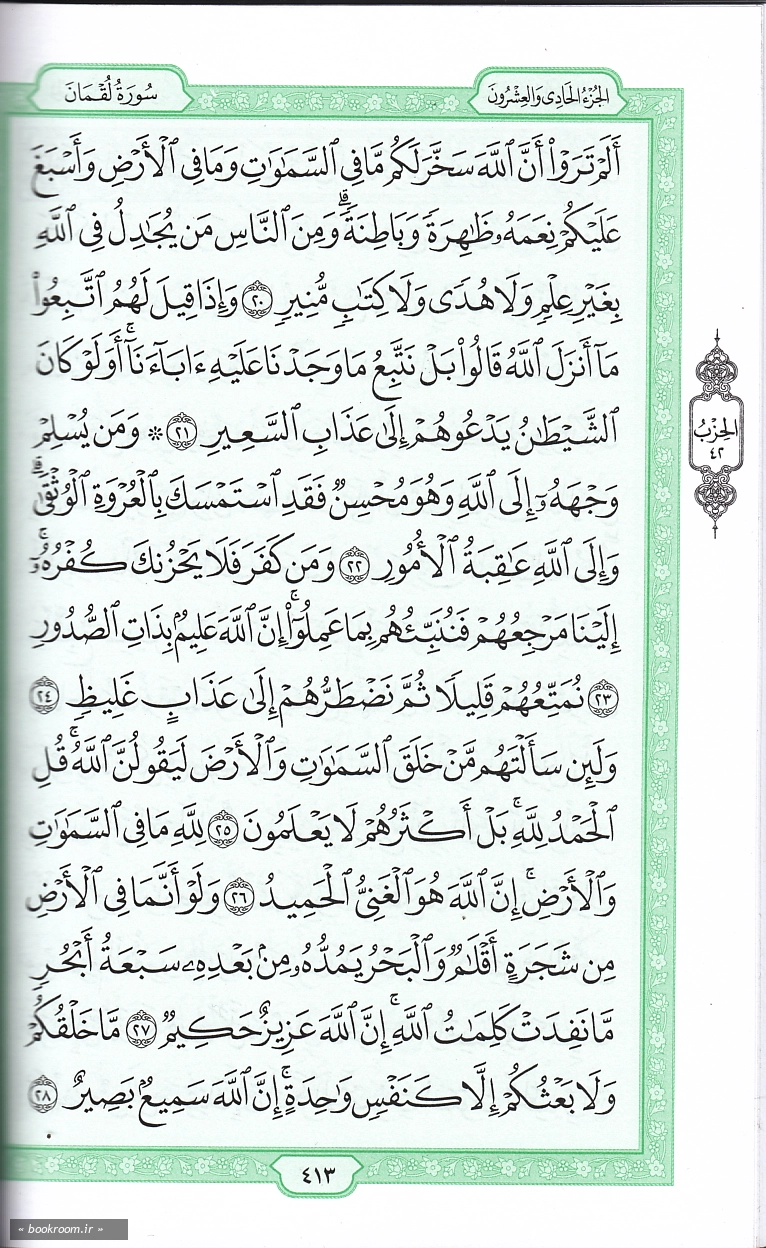 سُورَةُ لُقۡمَانَ
الجُزْءُ الحَادِي وَالعِشْرُونَ
أَلَمۡ تَرَوۡاْ أَنَّ ٱللَّهَ سَخَّرَ لَكُم مَّا فِي ٱلسَّمَٰوَٰتِ وَمَا فِي ٱلۡأَرۡضِ وَأَسۡبَغَ
عَلَيۡكُمۡ نِعَمَهُۥ ظَٰهِرَةٗ وَبَاطِنَةٗۗ وَمِنَ ٱلنَّاسِ مَن يُجَٰدِلُ فِي ٱللَّهِ
بِغَيۡرِ عِلۡمٖ وَلَا هُدٗى وَلَا كِتَٰبٖ مُّنِيرٖ ٢٠ وَإِذَا قِيلَ لَهُمُ ٱتَّبِعُواْ
مَآ أَنزَلَ ٱللَّهُ قَالُواْ بَلۡ نَتَّبِعُ مَا وَجَدۡنَا عَلَيۡهِ ءَابَآءَنَآۚ أَوَلَوۡ كَانَ
ٱلشَّيۡطَٰنُ يَدۡعُوهُمۡ إِلَىٰ عَذَابِ ٱلسَّعِيرِ ٢١ * وَمَن يُسۡلِمۡ
وَجۡهَهُۥٓ إِلَى ٱللَّهِ وَهُوَ مُحۡسِنٞ فَقَدِ ٱسۡتَمۡسَكَ بِٱلۡعُرۡوَةِ ٱلۡوُثۡقَىٰۗ
وَإِلَى ٱللَّهِ عَٰقِبَةُ ٱلۡأُمُورِ ٢٢ وَمَن كَفَرَ فَلَا يَحۡزُنكَ كُفۡرُهُۥٓۚ
إِلَيۡنَا مَرۡجِعُهُمۡ فَنُنَبِّئُهُم بِمَا عَمِلُوٓاْۚ إِنَّ ٱللَّهَ عَلِيمُۢ بِذَاتِ ٱلصُّدُورِ
٢٣ نُمَتِّعُهُمۡ قَلِيلٗا ثُمَّ نَضۡطَرُّهُمۡ إِلَىٰ عَذَابٍ غَلِيظٖ ٢٤
وَلَئِن سَأَلۡتَهُم مَّنۡ خَلَقَ ٱلسَّمَٰوَٰتِ وَٱلۡأَرۡضَ لَيَقُولُنَّ ٱللَّهُۚ قُلِ
ٱلۡحَمۡدُ لِلَّهِۚ بَلۡ أَكۡثَرُهُمۡ لَا يَعۡلَمُونَ ٢٥ لِلَّهِ مَا فِي ٱلسَّمَٰوَٰتِ
وَٱلۡأَرۡضِۚ إِنَّ ٱللَّهَ هُوَ ٱلۡغَنِيُّ ٱلۡحَمِيدُ ٢٦ وَلَوۡ أَنَّمَا فِي ٱلۡأَرۡضِ
مِن شَجَرَةٍ أَقۡلَٰمٞ وَٱلۡبَحۡرُ يَمُدُّهُۥ مِنۢ بَعۡدِهِۦ سَبۡعَةُ أَبۡحُرٖ
مَّا نَفِدَتۡ كَلِمَٰتُ ٱللَّهِۚ إِنَّ ٱللَّهَ عَزِيزٌ حَكِيمٞ ٢٧ مَّا خَلۡقُكُمۡ
وَلَا بَعۡثُكُمۡ إِلَّا كَنَفۡسٖ وَٰحِدَةٍۚ إِنَّ ٱللَّهَ سَمِيعُۢ بَصِيرٌ ٢٨
الحِزْبُ
٤٢
٤١٣
« bookroom.ir »